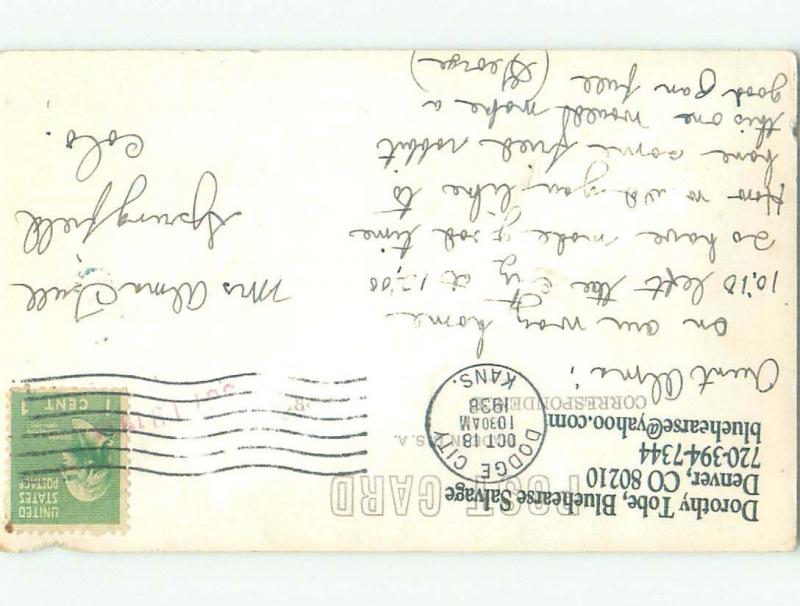 Dorothy Tobe, Bluehearse Salvage
Denver, CO 80210
720-394-7344
bluehearse@yahoo.com
POST CARD
CORRESPONDENCE
DODGE CITY
OCT 18
10 30 AM
1938
KANS.
UNITED
STATES
POSTAGE
1 CENT 1
Aunt Alma;
on our way home
10:10 left the City at 12:00
so have made good time
How w'd you like to
have some fried rabbit
this one would make a
good pan full
(George)
Mrs Alma
Springfield
Colo.